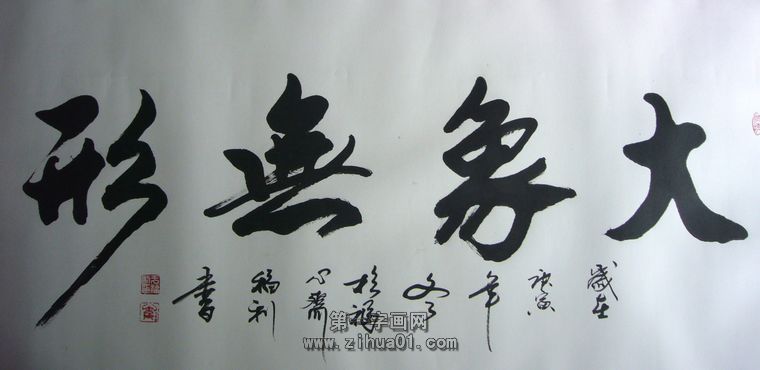 大象無形
歲在
庚寅
年
文
於
心齋
福利
書
第一字画网
www.zihua01.com